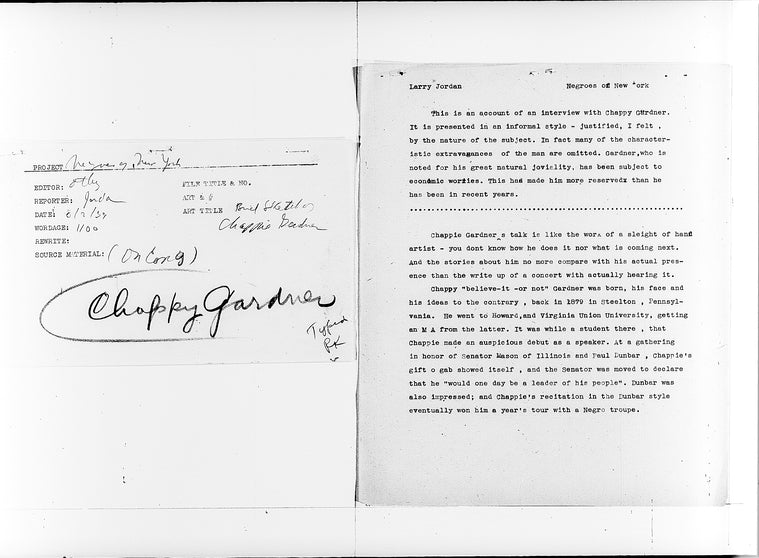 PROJECT Negroes of New York
EDITOR: Otley
REPORTER: Jordan
DATE: 6/7/39
WORDAGE: 1100
REWRITE:
SOURCE MATERIAL: (On Cong)
FILE TITLE & NO.
ART & 
ART TITLE Brief Sketch of
Chappie Gardner
Chappy Gardner
Typed
RK
Larry Jordan Negroes of New York
This is an account of an interview with Chappy Gardner.
It is presented in an informal style - justified, I felt ,
by the nature of the subject. In fact many of the character-
istic extravagances of the man are omitted. Gardner,who is
noted for his great natural joviality, has been subject to
economic worries. This has made him more reservedx than he
has been in recent years.
Chappie Gardner^s talk is like the work of a sleight of hand
artist - you dont know how he does it nor what is coming next.
And the stories about him no more compare with his actual pres-
ence than the write up of a concert with actually hearing it.
Chappy "believe-it -or not" Gardner was born, his face and
his ideas to the contrary , back in 1879 in Steelton , Pennsyl-
vania. He went to Howard,and Virginia Union University, getting
an M A from the latter. It was while a student there , that
Chappie made an auspicious debut as a speaker. At a gathering
in honor of Senator Mason of Illinois and Paul Dunbar , Chappie's
gift o gab showed itself , and the Senator was moved to declare
that he "would one day be a leader of his people". Dunbar was
also impressed; and Chappie's recitation in the Dunbar style
eventually won him a year's tour with a Negro troupe.